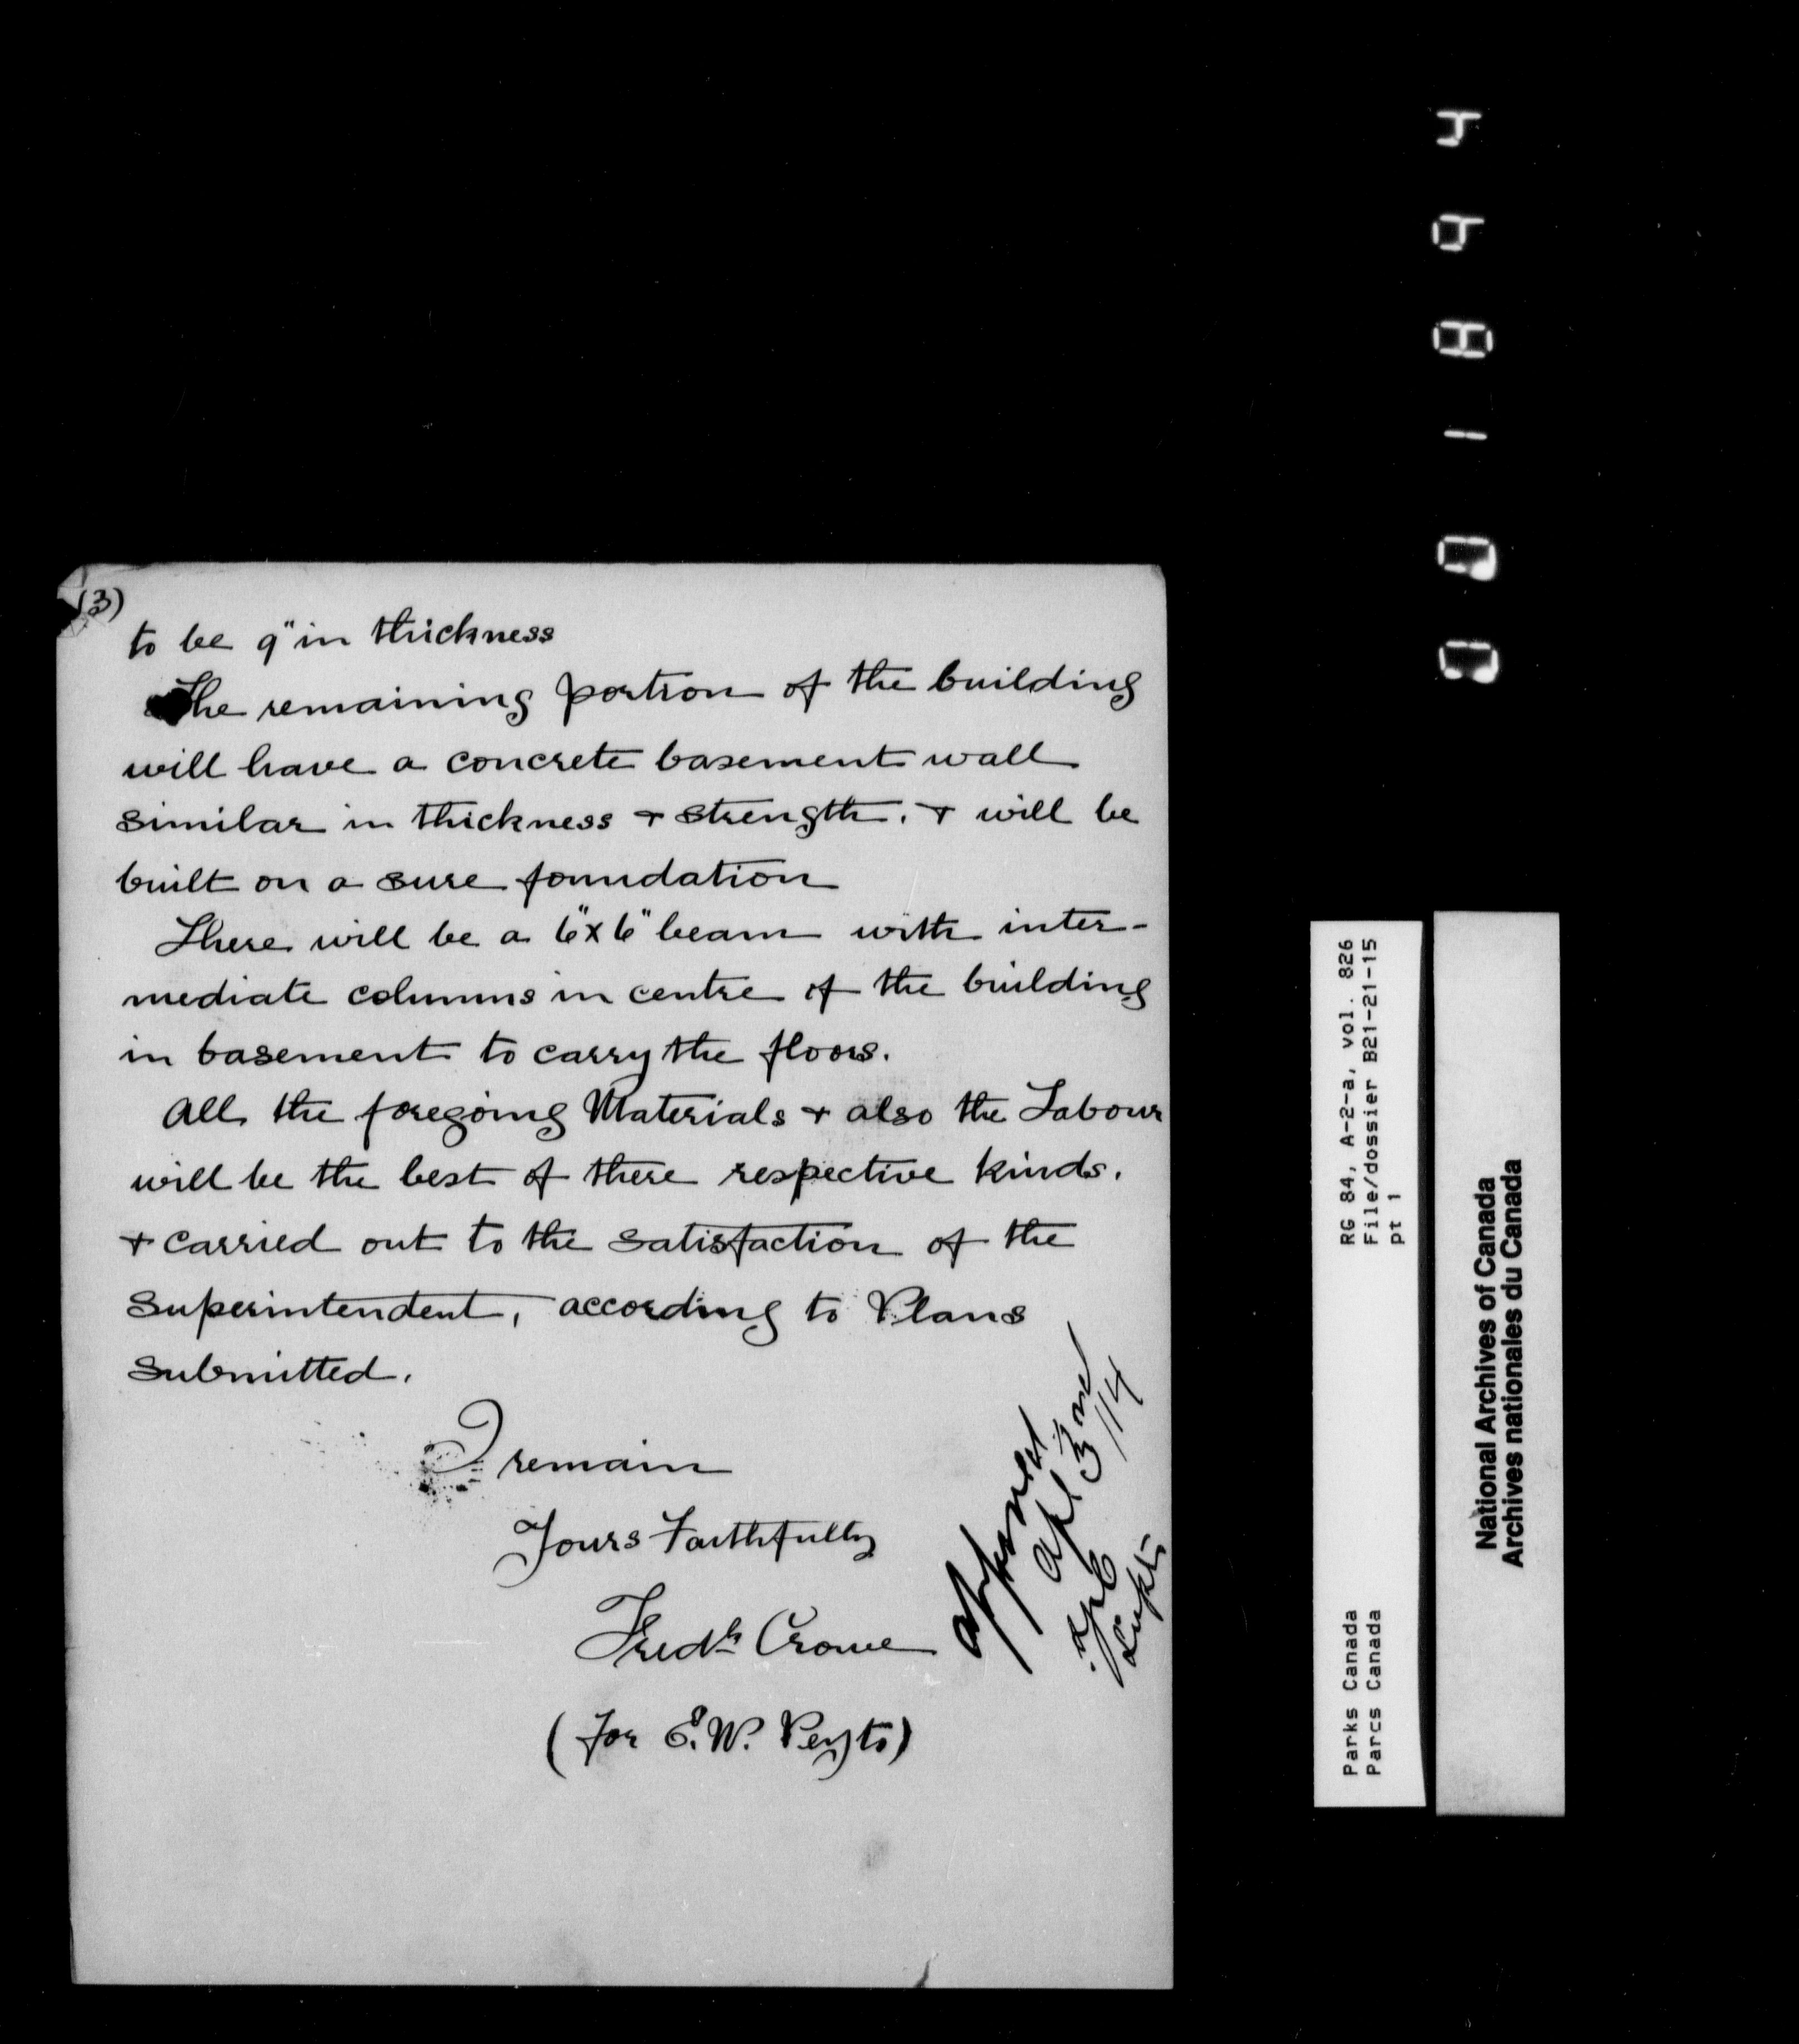 (3)
to be 9" in thickness
The remaining portion of the building
will have a concrete basement wall
similar in thickness + strength. + will be
built on a sure foundation
There will be a 6"x6" beam with inter-
mediate columns in centre of the building
in basement to carry the floors.
All the foregoing Materials + also the Labour
will be the best of there respective kinds.
+ carried out to the satisfaction of the
Superintendent, according to Plans
submitted.
I remain
Yours Faithfully
Fredk Crowe
(for E.W. Peyto)
approved
Apl 3rd
/14
Supt.
RG 84, A-2-a, vol. 826
File/dossier B21-21-15
pt 1
Parks Canada
Parcs Canada
National Archives of Canada
Archives nationales du Canada